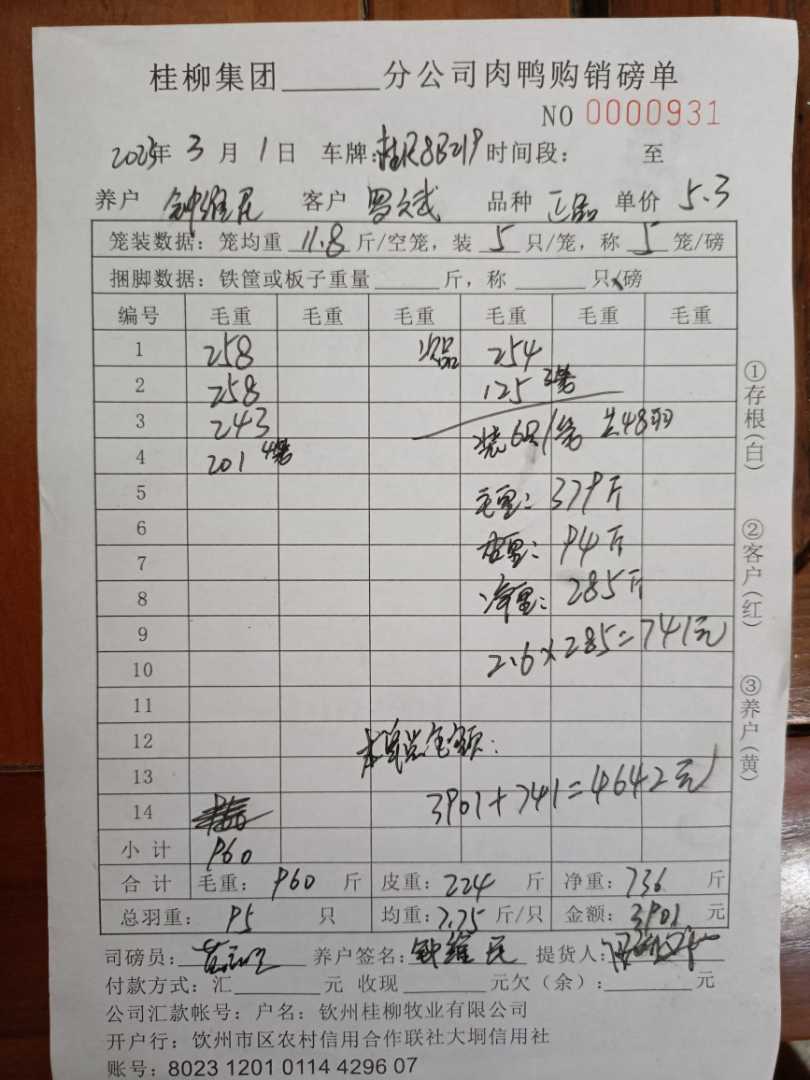 桂柳集团______分公司肉鸭购销磅单
NO 0000931
2025年 3 月 1 日 车牌:桂R8B219 时间段: 至
养户 钟维民 客户 罗文武 品种 正品 单价 5.3
笼装数据: 笼均重 11.8 斤/空笼, 装 5 只/笼, 称 5 笼/磅
捆脚数据: 铁筐或板子重量______斤, 称______只/磅
编号 毛重 毛重 毛重 毛重 毛重 毛重
1 258 次品 254
2 258 125 3笼
3 243 装6只/笼 共48羽
4 201 4笼
5 毛重: 379斤
6
7 皮重: 94斤
8 净重: 285斤
9 2.6×285=741元
10
11
12 本单总金额:
13 3901+741=4642元
14
小计 960
合计 毛重: 960 斤 皮重: 224 斤 净重: 736 斤
总羽重: 95 只 均重: 7.75 斤/只 金额: 3901 元
司磅员: 养户签名: 钟维民 提货人:
付款方式: 汇______元 收现______元欠(余):______元
公司汇款帐号: 户名: 钦州桂柳牧业有限公司
开户行: 饮州市区农村信用合作联社大垌信用社
账号: 8023 1201 0114 4296 07
①存根(白) ②客户(红) ③养户(黄)